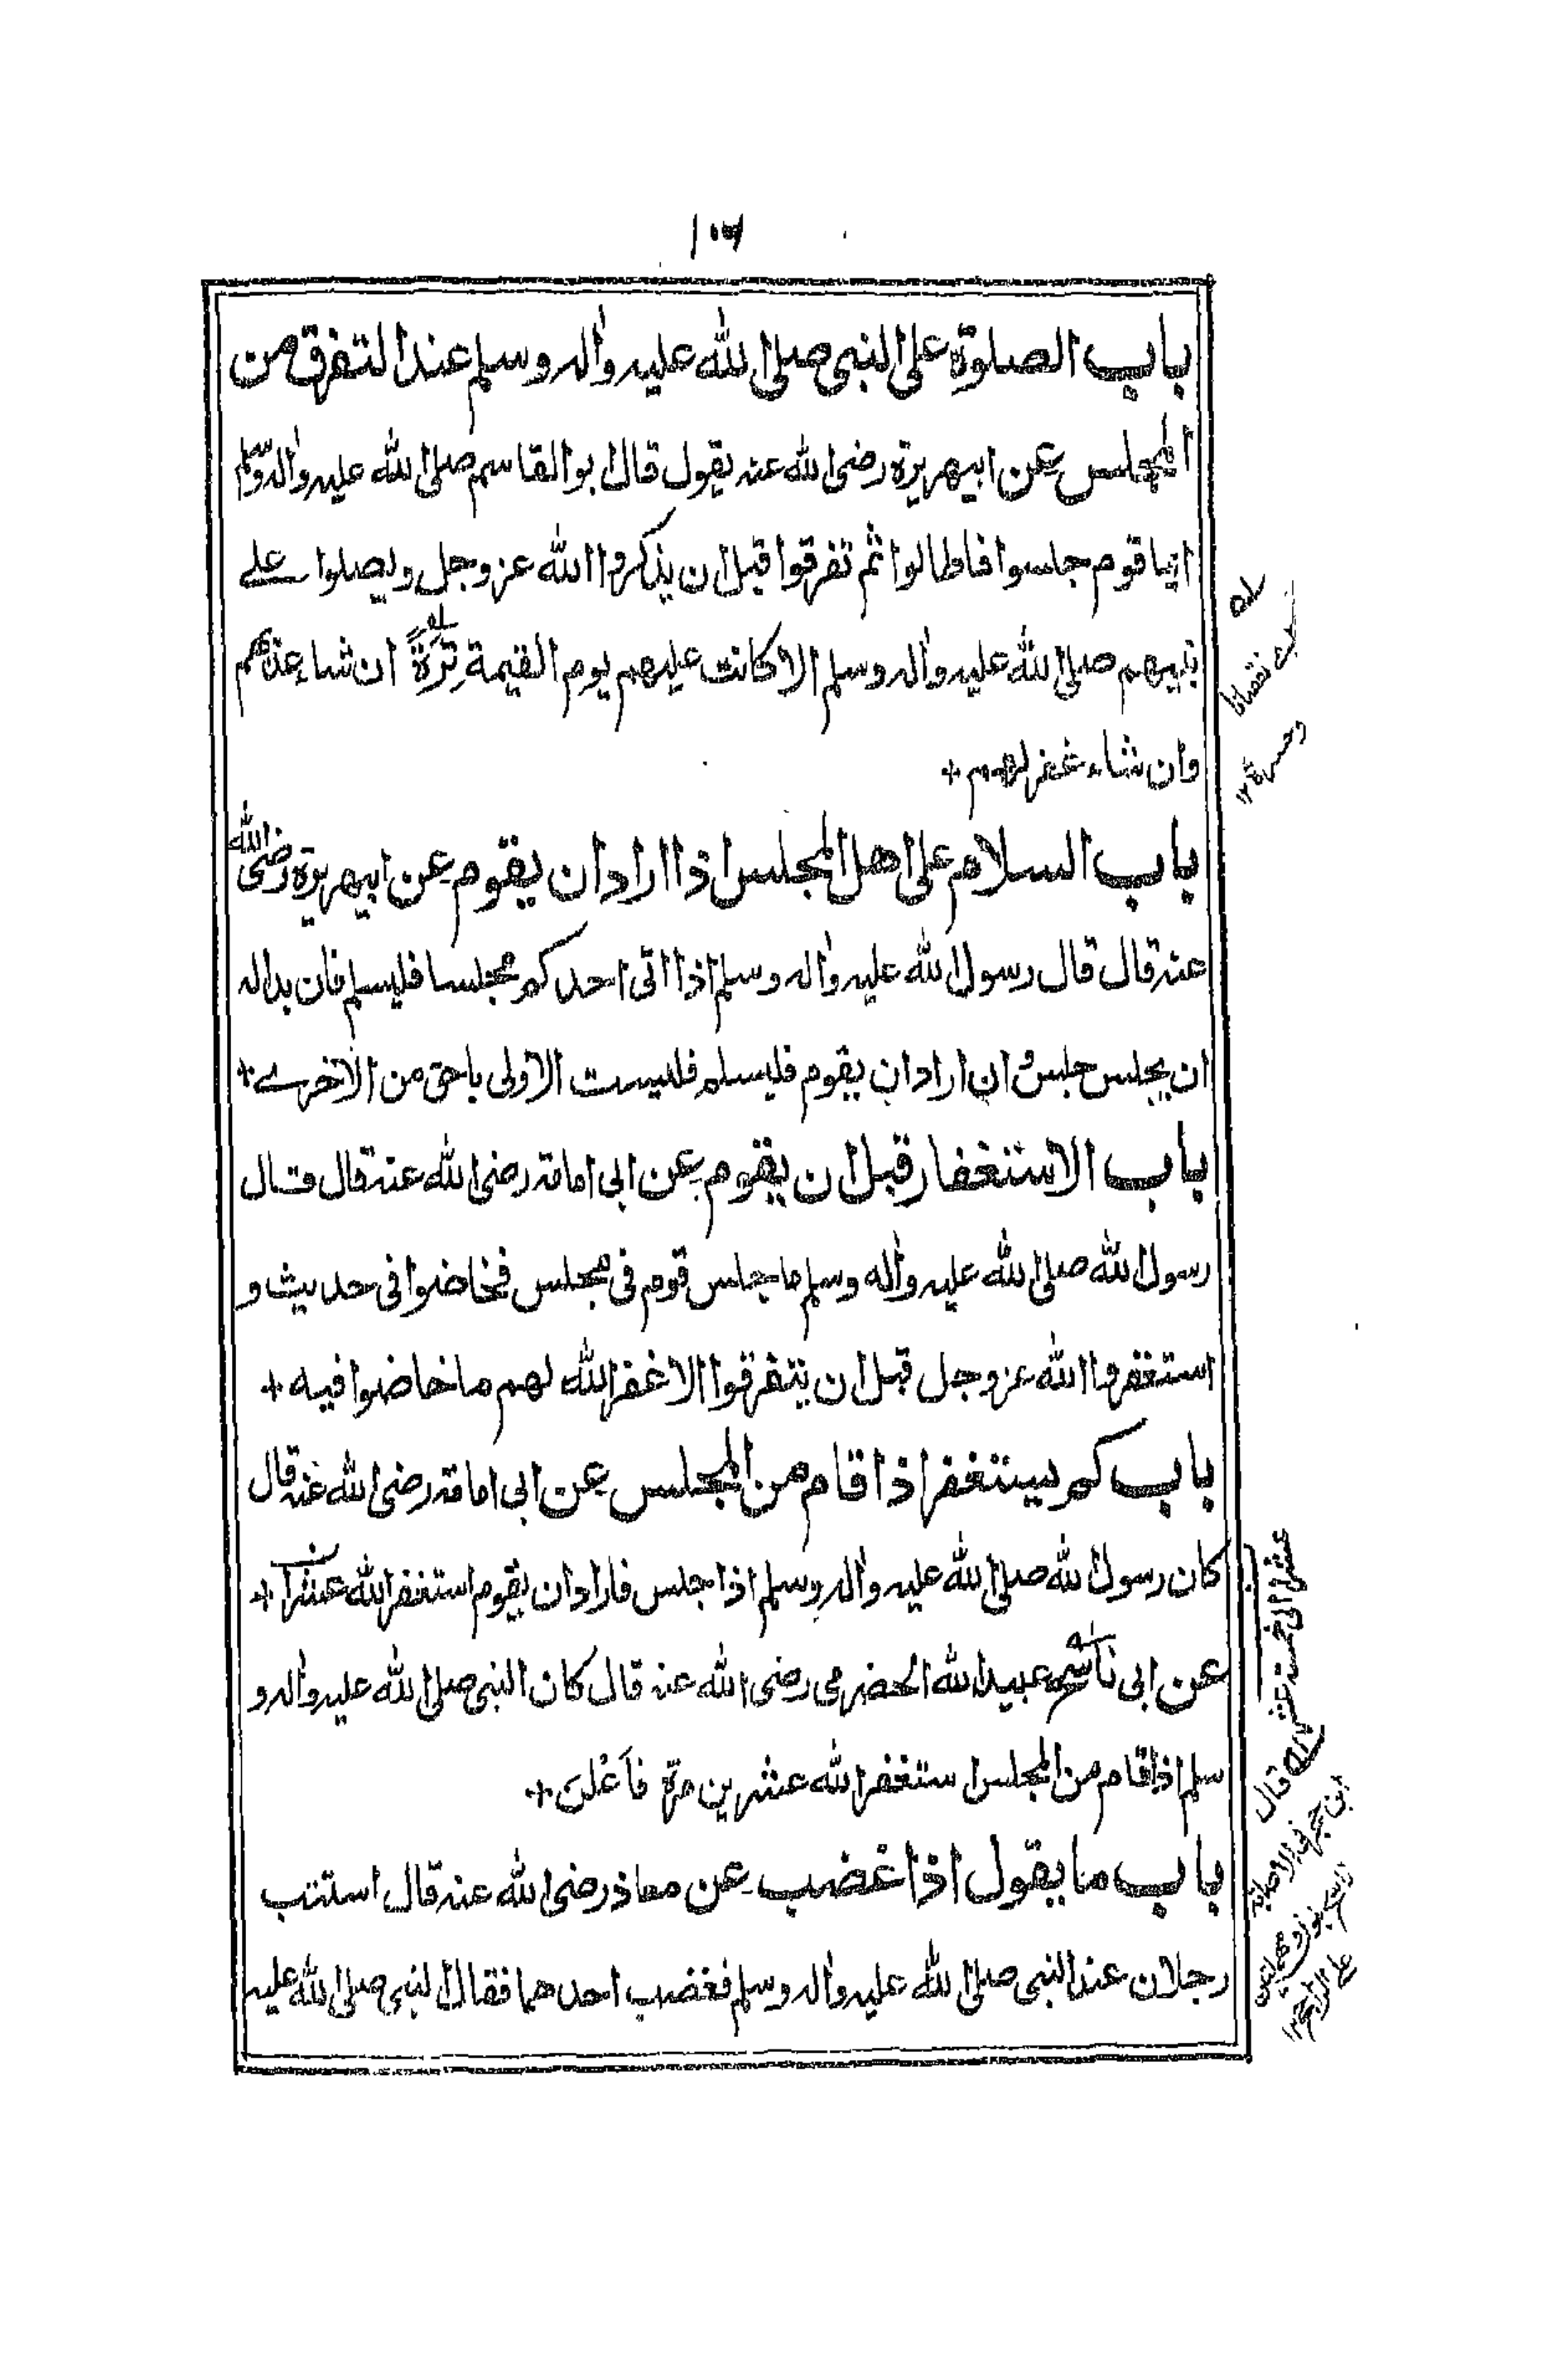 باب الصلوة على النبى صلى الله عليه واٰله وسلم عند التفرق من
المجلس عن ابيهريرة رضى الله عنه يقول قال ابو القاسم صلى الله عليه واٰله وسلم
ايما قوم جلسوا فاطالوا ثم تفرقوا قبل ان يذكروا الله عز وجل ويصلوا على
نبيهم صلى الله عليه واٰله وسلم الا كانت عليهم يوم القيمة تِرَةً ان شاء عذبهم
وان شاء غفر لهم +
باب السلام على اهل المجلس اذا اراد ان يقوم عن ابيهريرة رضى الله
عنه قال قال رسول الله عليه واٰله وسلم اذا اتى احدكم مجلسا فليسلم فان بدا له
ان يجلس جلس و ان اراد ان يقوم فليسلم فليست الاولى باحق من الاخرى +
باب الاستغفار قبل ان يقوم عن ابى امامة رضى الله عنه قال قال
رسول الله صلى الله عليه واٰله وسلم ما جلس قوم فى مجلس فخاضوا فى حديث و
استغفروا الله عز وجل قبل ان يتفرقوا الا غفر الله لهم ما خاضوا فيه +
باب كم يستغفر اذا قام من المجلس عن ابى امامة رضى الله عنه قال
كان رسول الله صلى الله عليه واٰله وسلم اذا جلس فاراد ان يقوم استغفر الله عشرا +
عن ابى ناشم عبيد الله الحضرمى رضى الله عنه قال كان النبى صلى الله عليه واٰله و
سلم اذا قام من المجلس استغفر الله عشرين مرة فاَعْلَنَ +
باب ما يقول اذا غضب عن معاذ رضى الله عنه قال استتب
رجلان عند النبى صلى الله عليه واٰله وسلم فغضب احدهما فقال النبى صلى الله عليه
له
نقصانا
وحسرة ١٢
عشرا الى خمسة عشر
قال
ابن حجر فى الاصابة